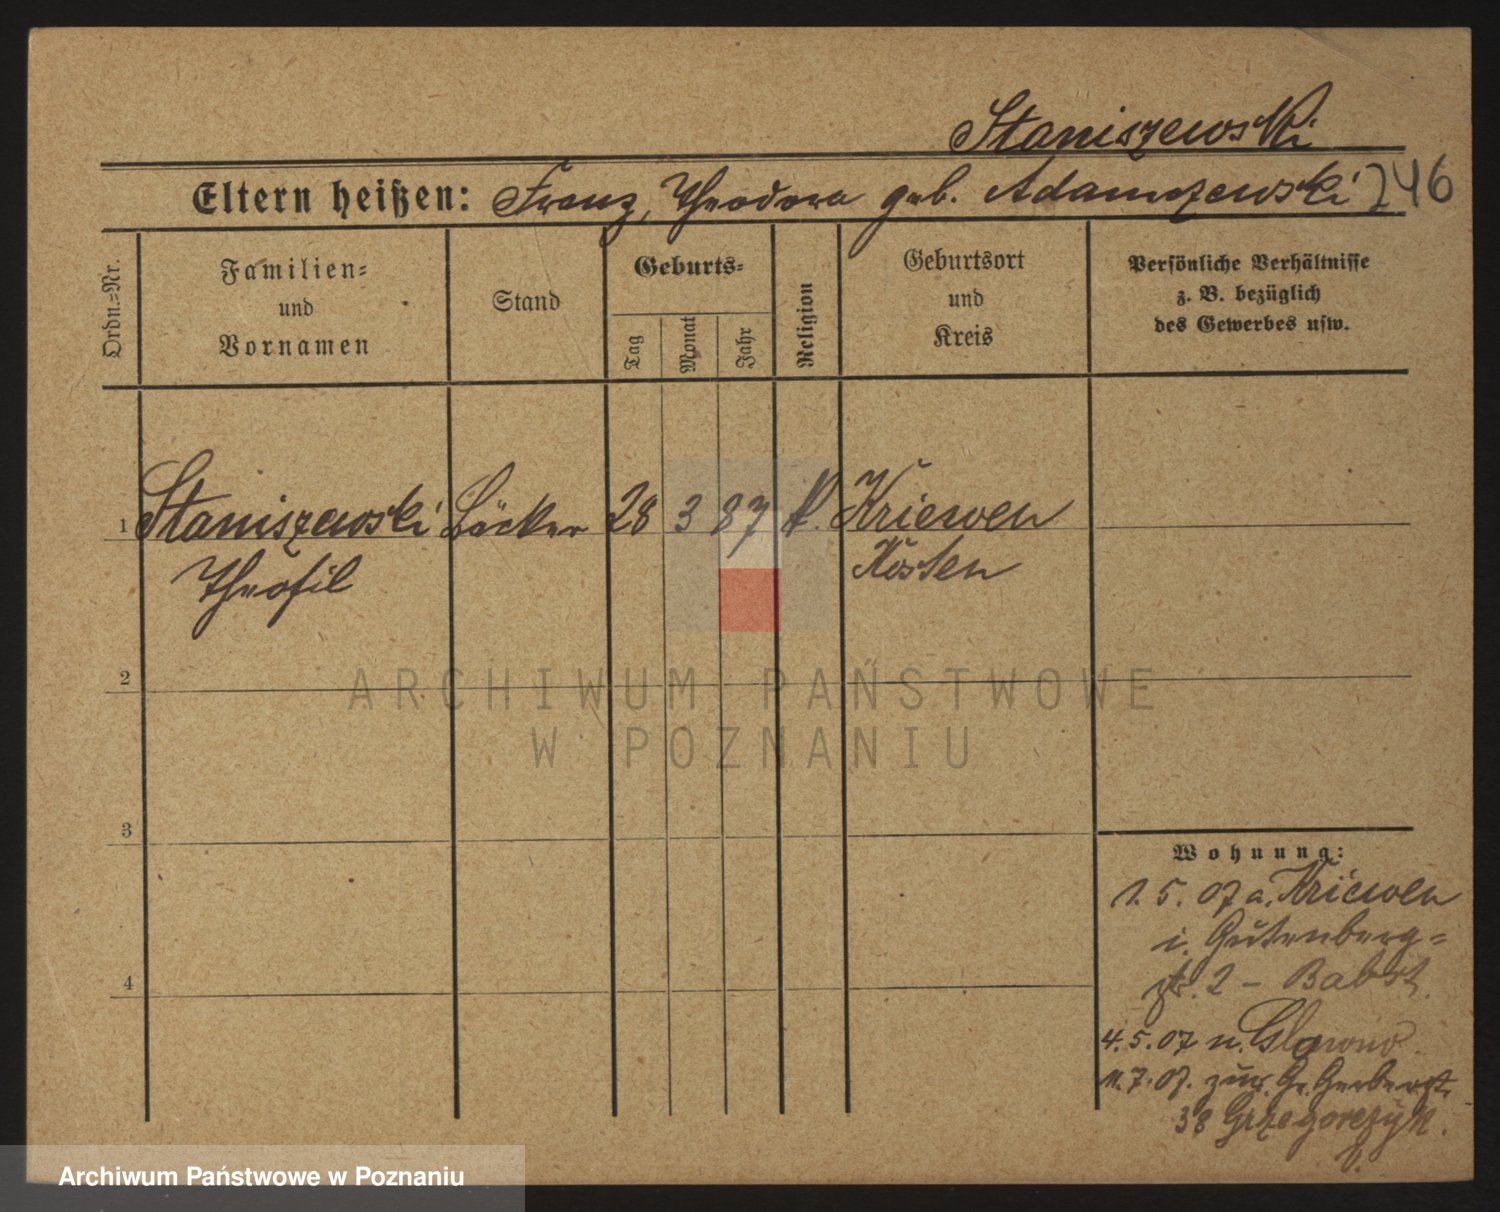 Staniszewski
Eltern heißen: Franz, Theodora geb. Adamczewski 246
Ordn.=Nr.
Familien=
und
Vornamen
Stand
Geburts=
Tag
Monat
Jahr
Religion
Geburtsort
und
Kreis
Persönliche Verhältnisse
z. B. bezüglich
des Gewerbes usw.
1 Staniszewski Bäcker 28 3 87 k. Kriewen
Theofil Kosten
2
ARCHIWUM PAŃSTWOWE
W POZNANIU
3
4
Wohnung:
1. 5. 07 a. Kriewen
i. Gutenberg=
str. 2 – Babst.
4. 5. 07 n. Glowno
11. 7. 07. zur. Gr. Gerberstr.
38 Grzegorczyk.
Archiwum Państwowe w Poznaniu